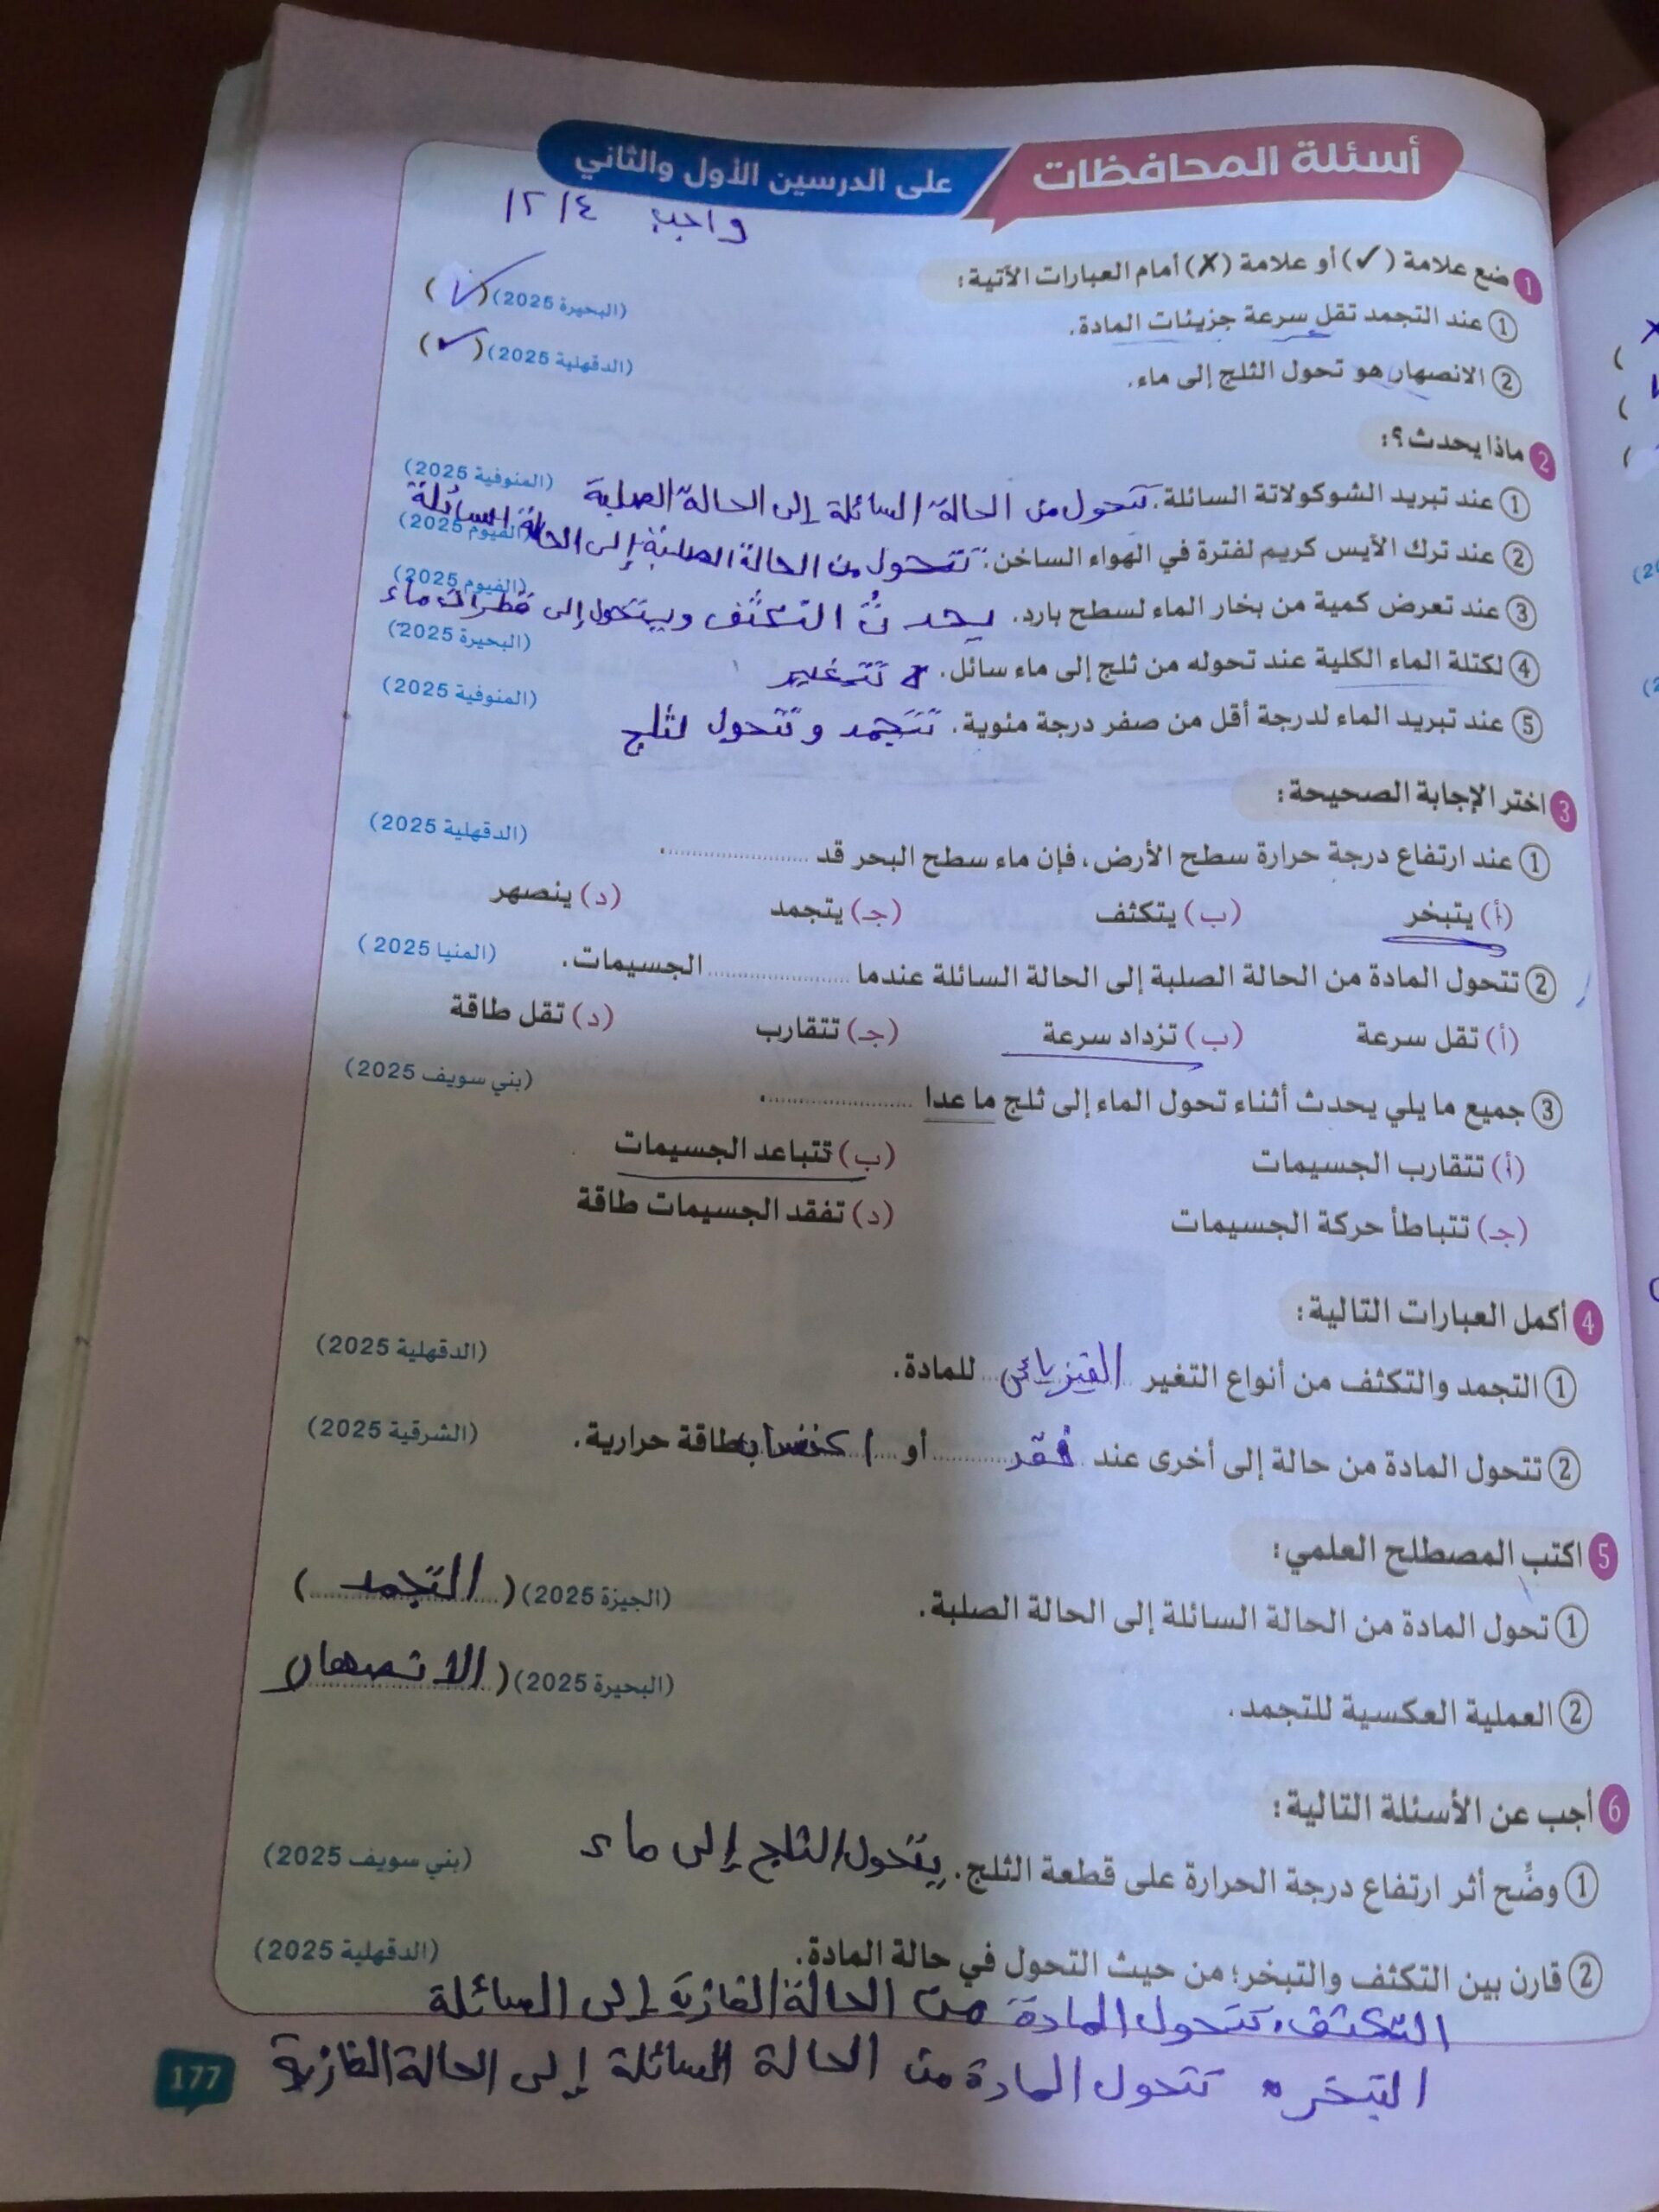 أسئلة المحافظات على الدرسين الأول والثاني
واجب ١٢/٤
1 ضع علامة (✓) أو علامة (✗) أمام العبارات الآتية:
① عند التجمد تقل سرعة جزيئات المادة. (البحيرة 2025) (✓)
② الانصهار هو تحول الثلج إلى ماء. (الدقهلية 2025) (✓)
2 ماذا يحدث؟:
① عند تبريد الشوكولاتة السائلة. تتحول من الحالة السائلة إلى الحالة الصلبة (المنوفية 2025)
② عند ترك الآيس كريم لفترة في الهواء الساخن. تتحول من الحالة الصلبة إلى الحالة السائلة (الفيوم 2025)
③ عند تعرض كمية من بخار الماء لسطح بارد. يحدث التكثف ويتحول إلى قطرات ماء (الفيوم 2025)
④ لكتلة الماء الكلية عند تحوله من ثلج إلى ماء سائل. تتغير (البحيرة 2025)
⑤ عند تبريد الماء لدرجة أقل من صفر درجة مئوية. تتجمد وتتحول لثلج (المنوفية 2025)
3 اختر الإجابة الصحيحة:
① عند ارتفاع درجة حرارة سطح الأرض، فإن ماء سطح البحر قد ............ . (الدقهلية 2025)
(أ) يتبخر (ب) يتكثف (جـ) يتجمد (د) ينصهر
② تتحول المادة من الحالة الصلبة إلى الحالة السائلة عندما ............ الجسيمات. (المنيا 2025)
(أ) تقل سرعة (ب) تزداد سرعة (جـ) تتقارب (د) تقل طاقة
③ جميع ما يلي يحدث أثناء تحول الماء إلى ثلج ما عدا ............ . (بني سويف 2025)
(أ) تتقارب الجسيمات (ب) تتباعد الجسيمات
(جـ) تتباطأ حركة الجسيمات (د) تفقد الجسيمات طاقة
4 أكمل العبارات التالية:
① التجمد والتكثف من أنواع التغير الفيزيائي للمادة. (الدقهلية 2025)
② تتحول المادة من حالة إلى أخرى عند فقد أو اكتساب طاقة حرارية. (الشرقية 2025)
5 اكتب المصطلح العلمي:
① تحول المادة من الحالة السائلة إلى الحالة الصلبة. (الجيزة 2025) (التجمد)
② العملية العكسية للتجمد. (البحيرة 2025) (الانصهار)
6 أجب عن الأسئلة التالية:
① وضِّح أثر ارتفاع درجة الحرارة على قطعة الثلج. يتحول الثلج إلى ماء (بني سويف 2025)
② قارن بين التكثف والتبخر؛ من حيث التحول في حالة المادة. (الدقهلية 2025)
التكثف: تتحول المادة من الحالة الغازية إلى السائلة
التبخر: تتحول المادة من الحالة السائلة إلى الحالة الغازية
177